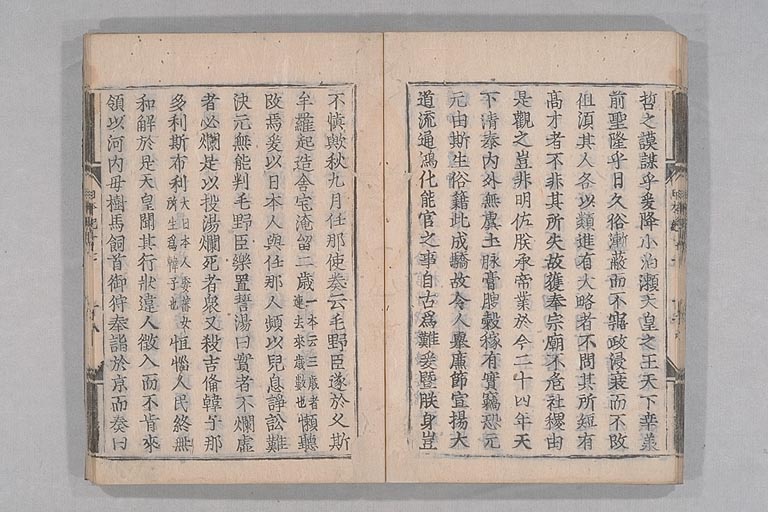 哲之謨謀乎爰降小泊瀬天皇之王天下幸承
前聖隆平日久俗漸蔽而不寤政浸衰而不改
但須其人各以類進有大略者不問其所短有
高才者不非其所失故獲奉宗廟不危社稷由
是觀之豈非明佐朕承帝業於今二十四年天
下清泰内外無虞土脉膏腴穀稼有實竊恐元
元由斯生俗籍此成驕故令人擧廉節宣揚大
道流通鴻化能官之事自古爲難爰曁朕身豈
不愼歟秋九月任那使奏云毛野臣遂於久斯
牟羅起造舎宅淹留二歳一本云三歳者連去來歳數也懶聽
政焉爰以日本人與任那人頻以兒息諍訟難
決元無能判毛野臣樂置誓湯曰實者不爛虚
者必爛是以投湯爛死者衆又殺吉備韓子那
多利斯布利大日本人娶蕃女所生爲韓子也恒惱人民終無
和解於是天皇聞其行状遣人徴入而不肯來
領以河内母樹馬飼首御狩奉詣於京而奏曰